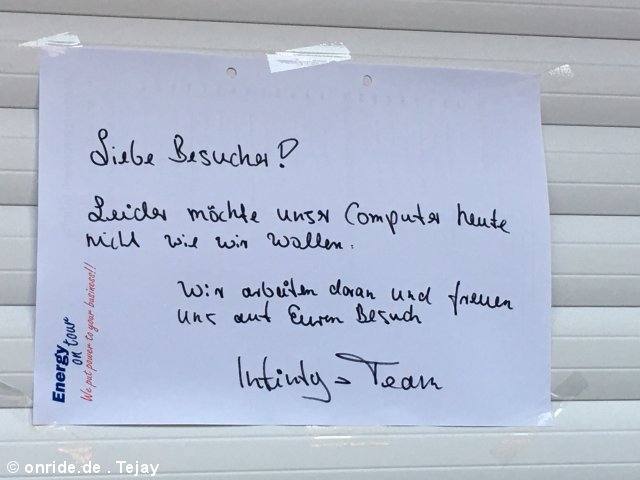 Liebe Besucher!
Leider möchte unser Computer heute
nicht wie wir wollen.
Wir arbeiten daran und freuen
uns auf Euren Besuch
Infinity - Team
Energy
on tour
We put power to your business!!
© onride.de . Tejay